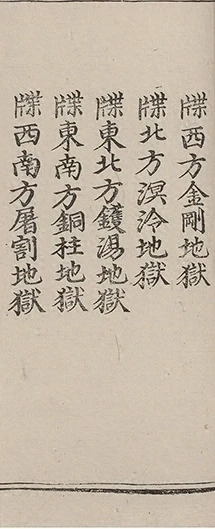 牒西方金剛地獄
牒北方溟泠地獄
牒東北方鑊湯地獄
牒東南方銅柱地獄
牒西南方屠割地獄